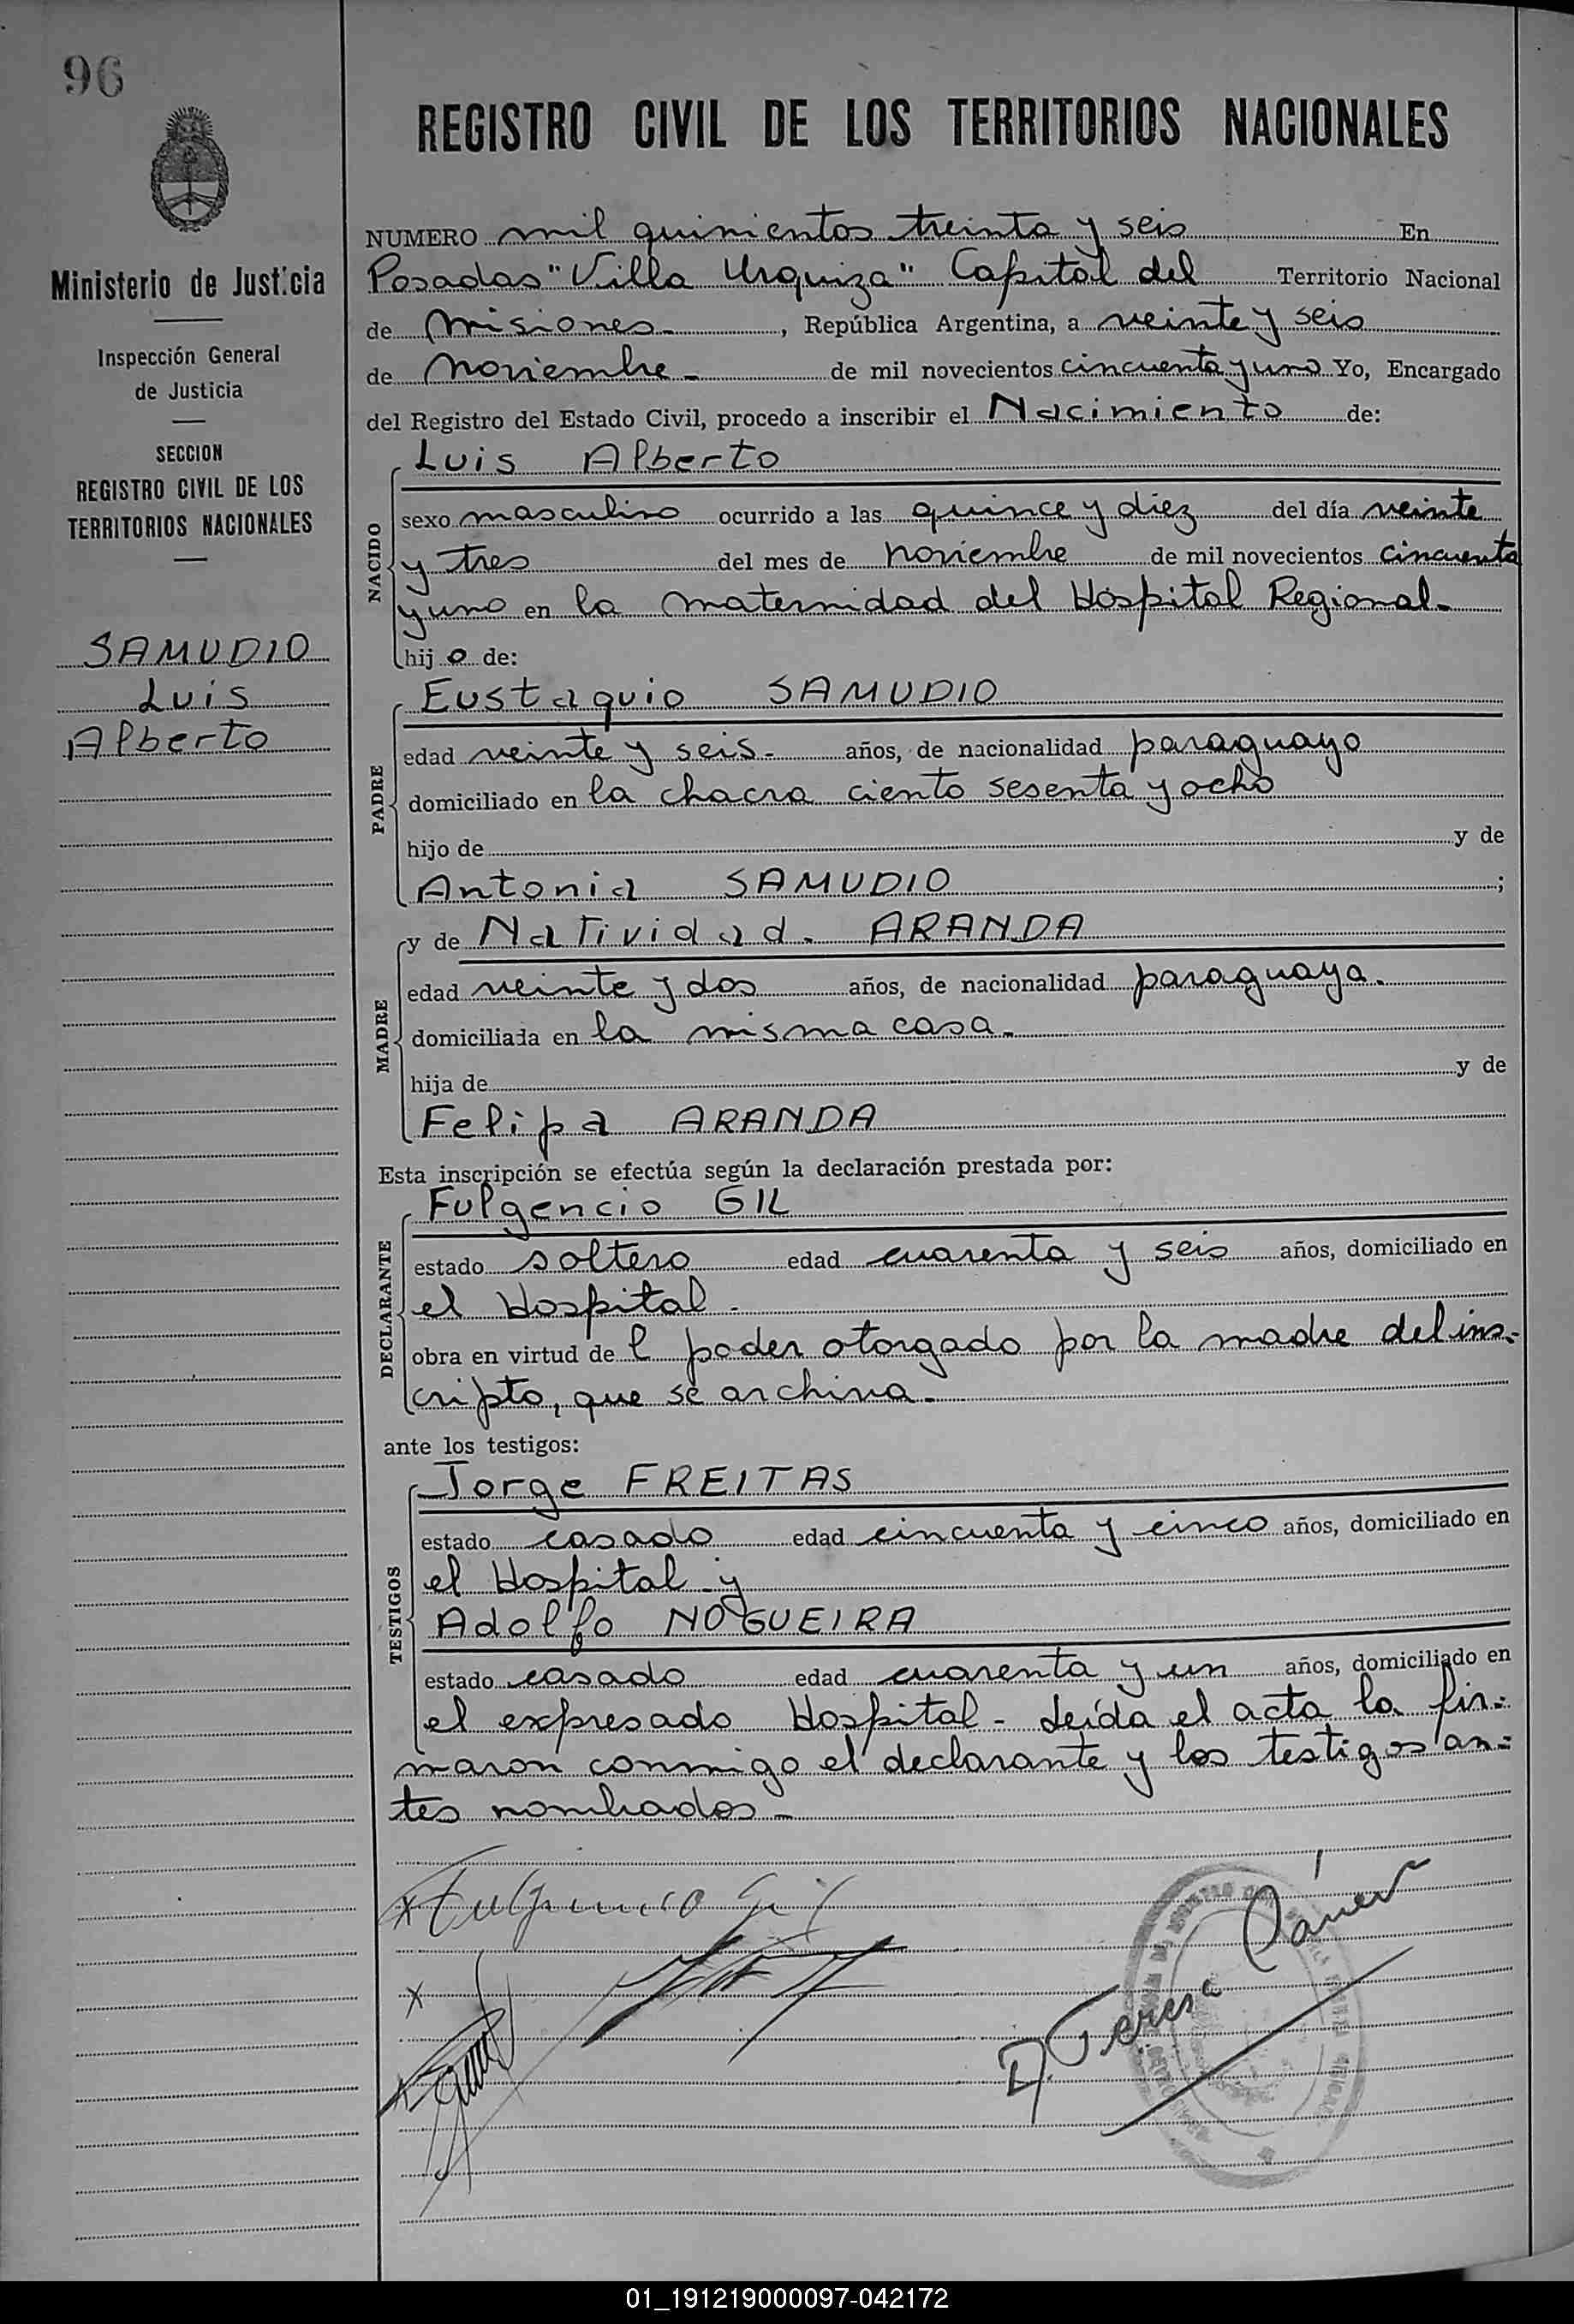 96
Ministerio de Justicia
Inspección General
de Justicia
SECCION
REGISTRO CIVIL DE LOS
TERRITORIOS NACIONALES
SAMUDIO
Luis
Alberto
REGISTRO CIVIL DE LOS TERRITORIOS NACIONALES
NUMERO mil quinientos treinta y seis En
Posadas "Villa Urquiza" Capital del Territorio Nacional
de Misiones.-, República Argentina, a veinte y seis
de Noviembre - de mil novecientos cincuenta y uno Yo, Encargado
del Registro del Estado Civil, procedo a inscribir el Nacimiento de:
NACIDO
Luis Alberto
sexo masculino ocurrido a las quince y diez del día veinte
y tres del mes de noviembre de mil novecientos cincuenta
y uno en la maternidad del Hospital Regional.-
hijo de:
PADRE
Eustaquio SAMUDIO
edad veinte y seis.- años, de nacionalidad paraguayo
domiciliado en la chacra ciento sesenta y ocho
hijo de y de
Antonia SAMUDIO ;
MADRE
y de Natividad. ARANDA
edad veinte y dos años, de nacionalidad paraguaya.
domiciliada en la misma casa.-
hija de y de
Felipa ARANDA
Esta inscripción se efectúa según la declaración prestada por:
DECLARANTE
Fulgencio GIL
estado soltero edad cuarenta y seis años, domiciliado en
el Hospital -
obra en virtud de l poder otorgado por la madre del ins-
cripto, que se archiva.-
ante los testigos:
TESTIGOS
Jorge FREITAS
estado casado edad cincuenta y cinco años, domiciliado en
el Hospital y
Adolfo NOGUEIRA
estado casado edad cuarenta y un años, domiciliado en
el expresado Hospital - Leída el acta la fir-
maron conmigo el declarante y los testigos an-
tes nombrados -
Fulgencio Gil
D. Teresa
01_191219000097-042172